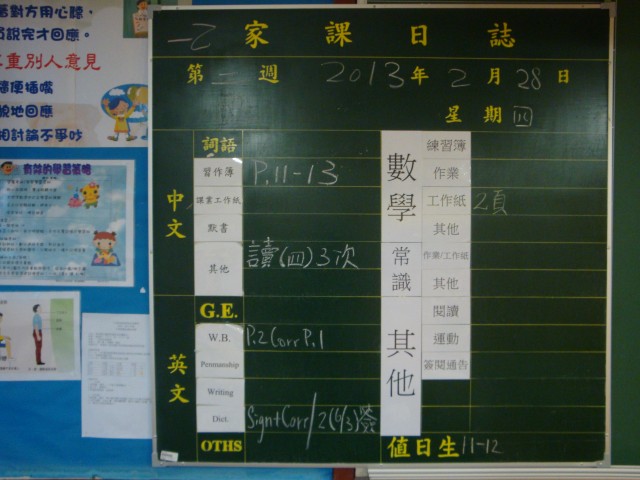 對方用心聽，
說完才回應。
重別人意見
便插嘴
地回應
討論不爭吵
有效的學習策略
一乙 家課日誌
第二週 2013年2月28日
星期四
中文
詞語
習作簿 P.11-13
課業工作紙
默書
其他 讀(四)3次
英文
G.E.
W.B. P.2 Corr P.1
Penmanship
Writing
Dict. Sign+Corr/2(6/3)簽
OTHS
數學
練習簿
作業
工作紙 2頁
其他
常識
作業/工作紙
其他
其他
閱讀
運動
簽閱通告
值日生 11-12